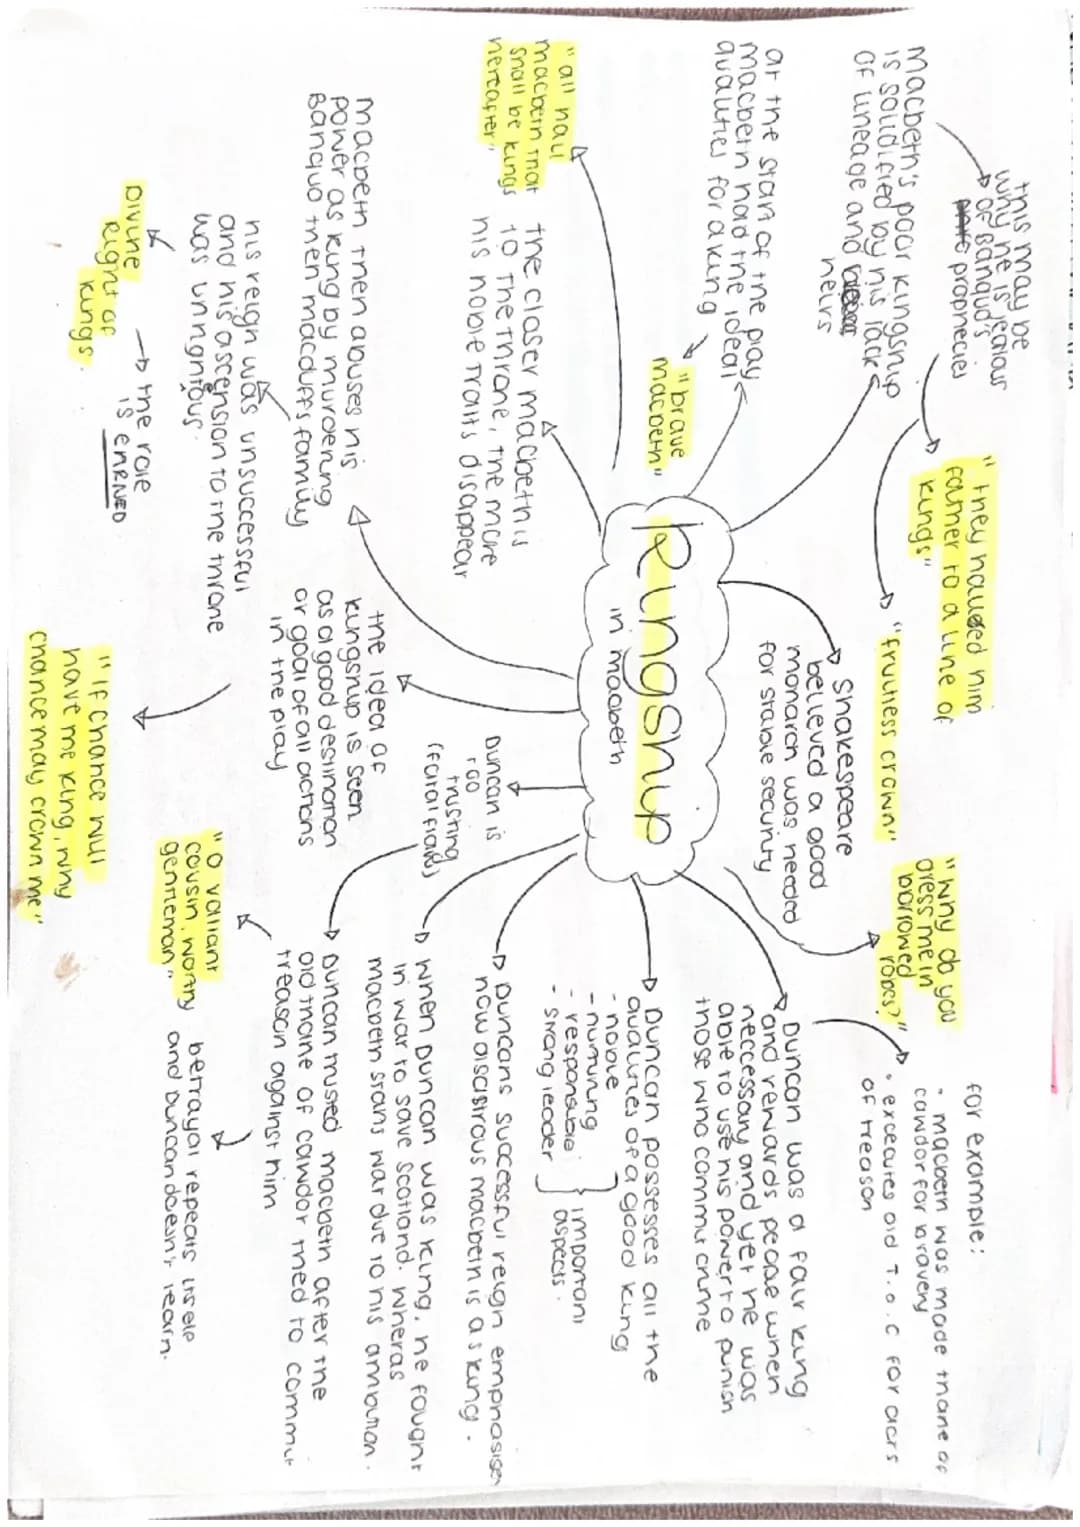 Kingship
in macbeth
this may be
why he is jealous
of Banquo's
prophecies
macbeth's poor kingship
is solidified by his lack
of lineage and
heirs
"they hailed him
father to a line of
kings"
"fruitless crown"
at the start of the play
macbeth had the ideal
qualities for a king
"brave
macbeth"
"all hail
macbeth that
shall be kings
hereafter"
the closer macbeth is
to the throne, the more
his noble traits disappear
macbeth then abuses his
power as king by murdering
Banquo then macduffs family
his reign was unsuccessful
and his ascension to the throne
was unrightous.
Divine
Right of
Kings.
the role
is EARNED
"If chance will
have me king, why
chance may crown me"
the idea of
kingship is seen
as a good destination
or goal of all actions
in the play
Shakespeare
believed a good
monarch was needed
for stable security
"Why do you
dress me in
borrowed
robes?"
for example:
• macbeth was made thane of
cawdor for bravery
• excecutes old T.o.C for acts
of treason
Duncan was a fair king
and rewards people when
neccessary and yet he was
able to use his power to punish
those who commit crime
Duncan possesses all the
qualities of a good king
- noble
- nurturing
- responsible
- strong leader
important
aspects.
Duncans successful reign emphasises
how disastrous macbeth is as king.
When Duncan was king, he fought
in war to save Scotland. Wheras
macbeth starts war due to his ambition.
Duncan is
too
trusting
(fatal flaw)
Duncan trusted macbeth after the
old thane of cawdor tried to commit
treason against him
"O valiant
cousin, worthy
gentleman"
betrayal repeats itself
and Duncan doesn't learn.